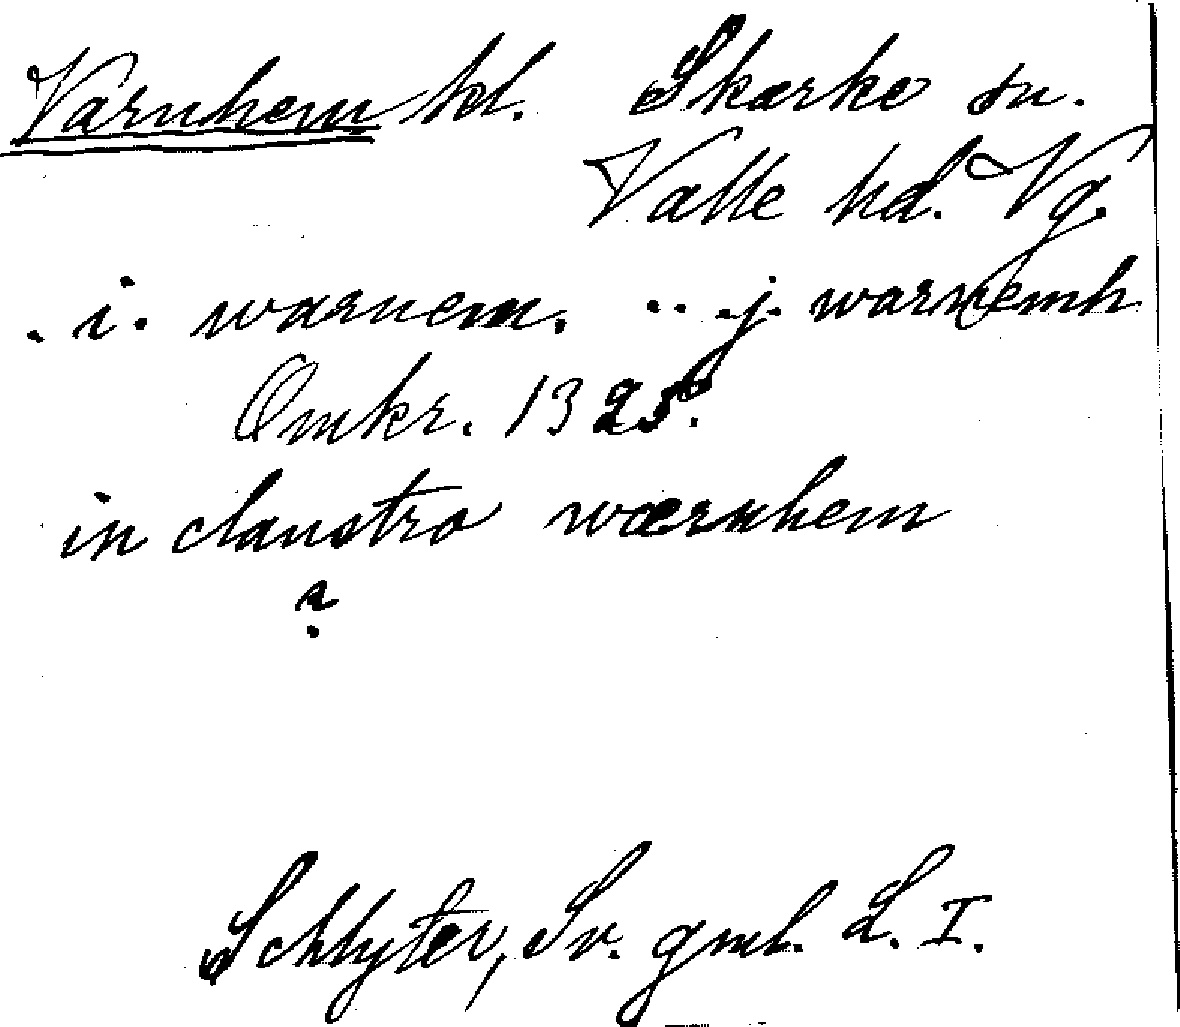 Varnhem kl. Skarke sn.
Valle hd. Vg.
. i. warnem. .. j. warnemh
Omkr. 1325.
in claustro wærnhem
?
Schlyter, Sv. gml. L. I.